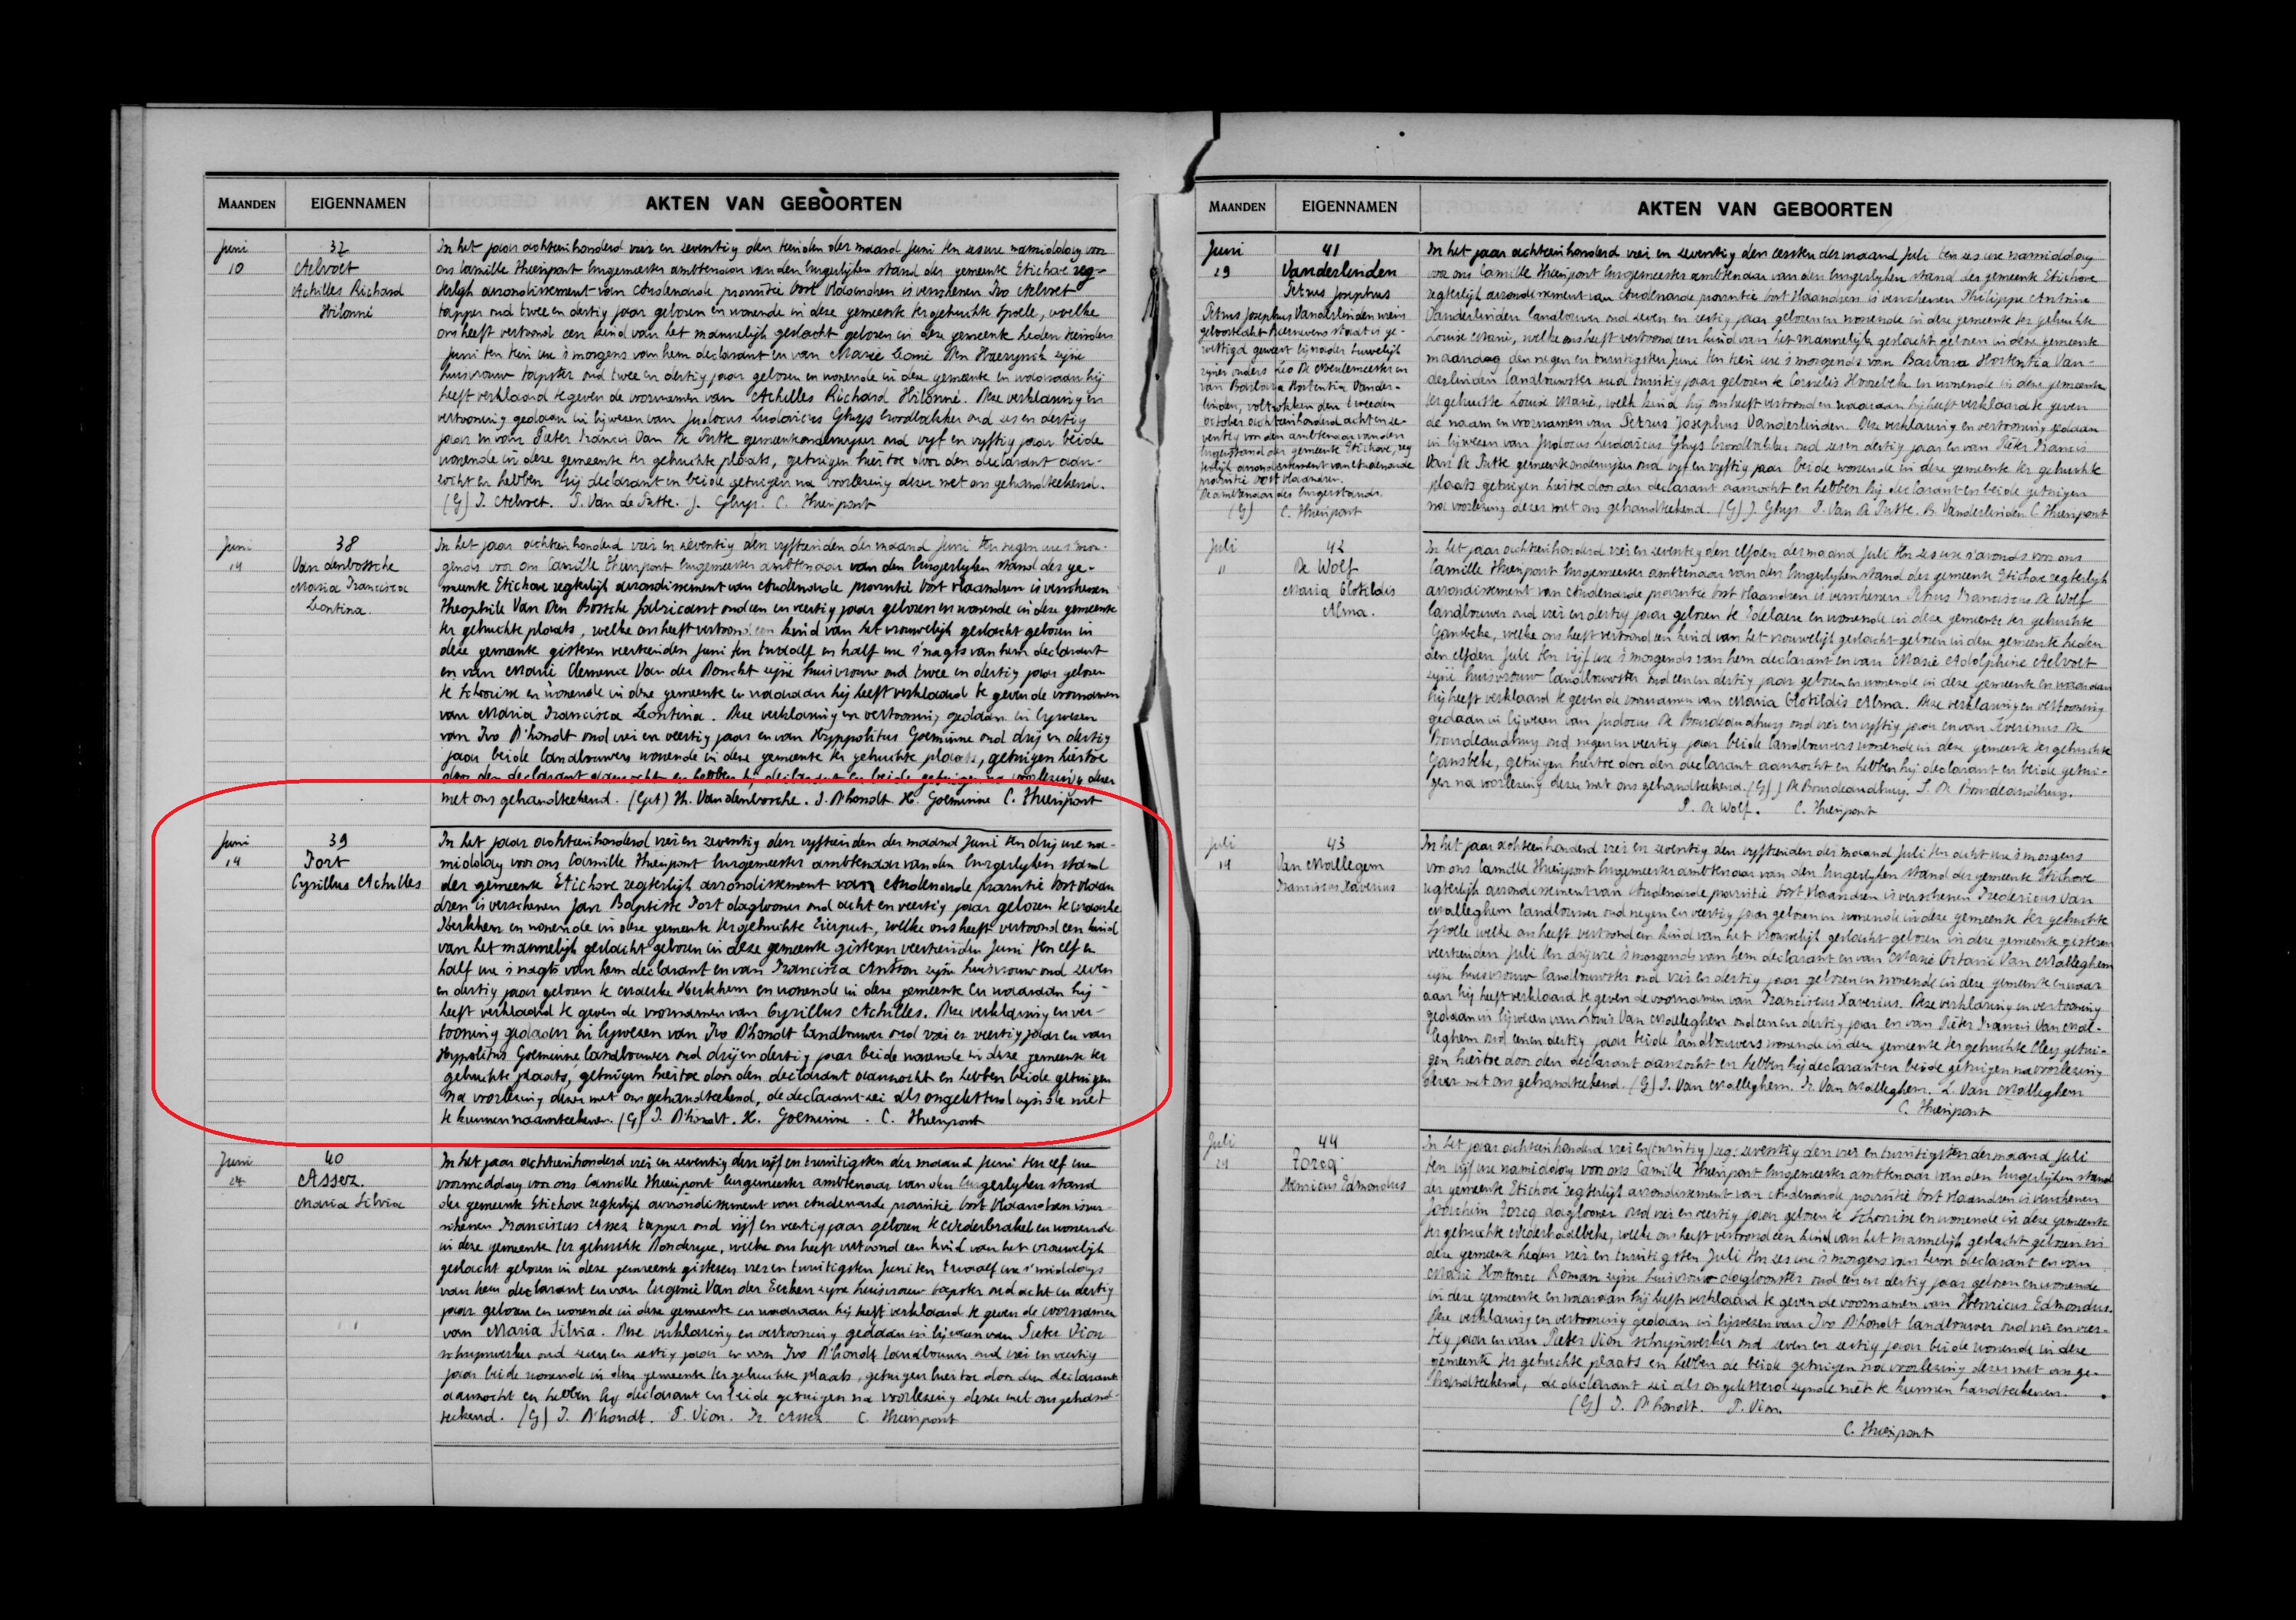 MAANDEN EIGENNAMEN AKTEN VAN GEBOORTEN
Juni
10
37
Aelvoet
Achilles Richard
Hilonni
In het jaar achttienhonderd vier en zeventig den tienden der maand Juni ten zes ure namiddag voor
ons Camille Thienpont burgemeester ambtenaar van den burgerlyken stand der gemeente Etichove reg-
terlijk arrondissement van Audenarde provintie Oost Vlaandren is verschenen Ivo Aelvoet
tapper oud twee en dertig jaar geboren en wonende in deze gemeente ter gehuchte Spoele, welke
ons heeft vertoond een kind van het mannelijk geslacht geboren in deze gemeente heden tienden
Juni ten tien ure s'morgens van hem declarant en van Marie Leonie Den Haerynck zijne
huisvrouw tapster oud twee en dertig jaar geboren en wonende in deze gemeente en waaraan hij
heeft verklaard te geven de voornamen van Achilles Richard Hilonni. Deze verklaring en
vertooning gedaan in bijwezen van Judocus Ludovicus Ghys broodbakker oud zes en dertig
jaar en van Pieter Francis Van De Putte gemeenteonderwijzer oud vyf en vyftig jaar beide
wonende in deze gemeente ter gehuchte plaats, getuigen hiertoe door den declarant aan-
zocht en hebben hij declarant en beide getuigen na voorlezing dezer met ons gehandteekend.
(G) I. Aelvoet. P. Van de Putte. J. Ghys. C. Thienpont
Juni
14
38
Van denbossche
Maria Francisca
Leontina.
In het jaar achttien honderd vier en zeventig den vyftienden der maand Juni ten negen ure s'mor-
gends voor ons Camille Thienpont burgemeester ambtenaar van den burgerlyken stand der ge-
meente Etichove regterlijk arrondissement van Audenarde provintie Oost Vlaandren is verschenen
Theophile Van Den Bossche fabricant oud een en veertig jaar geboren en wonende in deze gemeente
ter gehuchte plaats, welke ons heeft vertoond een kind van het vrouwelijk geslacht geboren in
deze gemeente gisteren veertienden Juni ten twaalf en half ure s'nagts van hem declarant
en van Marie Clemence Van der Donckt zijne huisvrouw oud twee en dertig jaar geboren
te Schoorisse en wonende in deze gemeente en waaraan hij heeft verklaard te geven de voornamen
van Maria Francisca Leontina. Deze verklaring en vertooning gedaan in bijwezen
van Ivo D'hondt oud vier en veertig jaar en van Hyppolitus Goeminne oud drij en dertig
jaar beide landbouwers wonende in deze gemeente ter gehuchte plaats, getuigen hiertoe
door den declarant aanzocht en hebben hij declarant en beide getuigen na voorlezing dezer
met ons gehandteekend. (Get) Th. Vandenbossche. I. D'hondt. H. Goeminne C. Thienpont
Juni
14
39
Fort
Cyrillus Achilles
In het jaar achttienhonderd vier en zeventig den vyftienden der maand Juni ten drij ure na-
middag voor ons Camille Thienpont burgemeester ambtenaar van den burgerlijken stand
der gemeente Etichove regterlijk arrondissement van Audenarde provintie Oost Vlaan
dren is verschenen Jan Baptiste Fort daglooner oud acht en veertig jaar geboren te Maarke
Kerkhem en wonende in deze gemeente ter gehuchte Eierput, welke ons heeft vertoond een kind
van het mannelijk geslacht geboren in deze gemeente gisteren veertienden Juni ten elf en
half ure s'nagts van hem declarant en van Francisca Antson zijne huisvrouw oud zeven
en dertig jaar geboren te Maerke Kerkhem en wonende in deze gemeente en waaraan hij
heeft verklaard te geven de voornamen van Cyrillus Achilles. Deze verklaring en ver-
tooning gedaan in bijwezen van Ivo D'hondt landbouwer oud vier en veertig jaar en van
Hyppolitus Goeminne landbouwer oud drij en dertig jaar beide wonende in deze gemeente ter
gehuchte plaats, getuigen hiertoe door den declarant aanzocht en hebben beide getuigen
na voorlezing dezer met ons gehandteekend, de declarant zei als ongeletterd zijnde niet
te kunnen naamteekenen. (G) I. D'hondt. H. Goeminne. C. Thienpont
Juni
24
40
Assez.
Maria Silvia
In het jaar achttienhonderd vier en zeventig den vijf en twintigsten der maand Juni ten elf ure
voormiddag voor ons Camille Thienpont burgemeester ambtenaar van den burgerlyken stand
der gemeente Etichove regterlijk arrondissement van Audenarde provintie Oost Vlaandren is ver-
schenen Franciscus Assez tapper oud vijf en veertig jaar geboren te Nederbrakel en wonende
in deze gemeente ter gehuchte Donderyee, welke ons heeft vertoond een kind van het vrouwelijk
geslacht geboren in deze gemeente gisteren vier en twintigsten Juni ten twaalf ure s'middags
van hem declarant en van Eugenie Van der Eecken zijne huisvrouw tapster oud acht en dertig
jaar geboren en wonende in deze gemeente en waaraan hij heeft verklaard te geven de voornamen
van Maria Silvia. Deze verklaring en vertooning gedaan in bijwezen van Pieter Vion
schrijnwerker oud zeven en zestig jaar en van Ivo D'hondt landbouwer oud vier en veertig
jaar beide wonende in deze gemeente ter gehuchte plaats, getuigen hiertoe door den declarant
aanzocht en hebben hij declarant en beide getuigen na voorlezing dezer met ons gehand-
teekend. (G) I. D'hondt. P. Vion. Fr. Assez C. Thienpont
MAANDEN EIGENNAMEN AKTEN VAN GEBOORTEN
Juni
29
41
Vanderlinden
Petrus Josephus
Petrus Josephus Vanderlinden wiens
geboorteakt hiernevens staat is ge-
wettigd geweest bij nader huwelijk
zijner ouders Leo De Meulemeester en
van Barbara Hortentia Vander-
linden, voltrokken den tweeden
october achttienhonderd acht en ze-
ventig voor den ambtenaar van den
burgerstand der gemeente Etichove, reg
terlijk arrondissement van Audenarde
provintie Oost Vlaandren.
De ambtenaar des burgerstands.
(G) C. Thienpont
In het jaar achttienhonderd vier en zeventig den eersten der maand Juli ten zes ure namiddag
voor ons Camille Thienpont burgemeester ambtenaar van den burgerlyken stand der gemeente Etichove
regterlijk arrondissement van Audenarde provintie Oost Vlaandren is verschenen Philippe Antoine
Vanderlinden landbouwer oud zeven en zestig jaar geboren en wonende in deze gemeente ter gehuchte
Louise Marie, welke ons heeft vertoond een kind van het mannelijk geslacht geboren in deze gemeente
maandag den negen en twintigsten Juni ten tien ure s'morgends van Barbara Hortentia Van-
derlinden landbouwster oud twintig jaar geboren te Cornelis Hoorebeke en wonende in deze gemeente
ter gehuchte Louise Marie, welk kind hij ons heeft vertoond en waaraan hij heeft verklaard te geven
de naam en voornamen van Petrus Josephus Vanderlinden. Deze verklaring en vertooning gedaan
in bijwezen van Judocus Ludovicus Ghys broodbakker oud zes en dertig jaar en van Pieter Francis
Van De Putte gemeenteonderwijzer oud vyf en vyftig jaar beide wonende in deze gemeente ter gehuchte
plaats getuigen hiertoe door den declarant aanzocht en hebben hij declarant en beide getuigen
na voorlezing dezer met ons gehandteekend. (G) J. Ghys P. Van De Putte. P. Vanderlinden C. Thienpont
Juli
11
42
De Wolf
Maria Clotildis
Alma.
In het jaar achttienhonderd vier en zeventig den elfden der maand Juli ten zes ure s'avonds voor ons
Camille Thienpont burgemeester ambtenaar van den burgerlyken stand der gemeente Etichove regterlijk
arrondissement van Audenarde provintie Oost Vlaandren is verschenen Petrus Franciscus De Wolf
landbouwer oud vier en dertig jaar geboren te Edelaere en wonende in deze gemeente ter gehuchte
Gansbeke, welke ons heeft vertoond een kind van het vrouwelijk geslacht geboren in deze gemeente heden
den elfden Juli ten vijf ure s'morgends van hem declarant en van Marie Adolphine Aelvoet
zijne huisvrouw landbouwster oud een en dertig jaar geboren en wonende in deze gemeente en waaraan
hij heeft verklaard te geven de voornamen van Maria Clotildis Alma. Deze verklaring en vertooning
gedaan in bijwezen van Judocus De Bourdeaudhuy oud vier en vyftig jaar en van Severinus De
Bourdeaudhuy oud negen en veertig jaar beide landbouwers wonende in deze gemeente ter gehuchte
Gansbeke, getuigen hiertoe door den declarant aanzocht en hebben hij declarant en beide getui-
gen na voorlezing dezer met ons gehandteekend. (G) J De Bourdeaudhuy. S. De Bourdeaudhuy.
P. De Wolf. C. Thienpont
Juli
14
43
Van Mallegem
Franciscus Xaverius
In het jaar achttienhonderd vier en zeventig den vyftienden der maand Juli ten acht ure s'morgens
voor ons Camille Thienpont burgemeester ambtenaar van den burgerlyken stand der gemeente Etichove
regterlijk arrondissement van Audenarde provintie Oost Vlaandren is verschenen Fredericus Van
Malleghem landbouwer oud negen en veertig jaar geboren en wonende in deze gemeente ter gehuchte
Spoelle welke ons heeft vertoond een kind van het vrouwelijk geslacht geboren in deze gemeente gisteren
veertienden Juli ten drij ure s'morgends van hem declarant en van Marie Octavie Van Malleghem
zijne huisvrouw landbouwster oud vier en dertig jaar geboren en wonende in deze gemeente en waar
aan hij heeft verklaard te geven de voornamen van Franciscus Xaverius. Deze verklaring en vertooning
gedaan in bijwezen van Louis Van Malleghem oud een en dertig jaar en van Pieter Francis Van Mal-
leghem oud een en dertig jaar beide landbouwers wonende in deze gemeente ter gehuchte Cleij getui-
gen hiertoe door den declarant aanzocht en hebben hij declarant en beide getuigen na voorlezing
dezer met ons gehandteekend. (G) F. Van Malleghem. Fr. Van Malleghem. L. Van Malleghem
C. Thienpont
Juli
24
44
Forcq
Henricus Edmondus
In het jaar achttienhonderd vier en (twintig) zeg: zeventig den vier en twintigsten der maand Juli
ten vijf ure namiddag voor ons Camille Thienpont burgemeester ambtenaar van den burgerlijken stand
der gemeente Etichove regterlijk arrondissement van Audenarde provintie Oost Vlaandren is verschenen
Joachim Forcq daglooner oud vier en veertig jaar geboren te Schoorisse en wonende in deze gemeente
ter gehuchte Nederholbeke, welke ons heeft vertoond een kind van het mannelijk geslacht geboren in
deze gemeente heden vier en twintigsten Juli ten zes ure s'morgens van hem declarant en van
Marie Hortence Roman zijne huisvrouw dagloonster oud een en dertig jaar geboren en wonende
in deze gemeente en waaraan hij heeft verklaard te geven de voornamen van Henricus Edmondus.
Deze verklaring en vertooning gedaan in bijwezen van Ivo D'hondt landbouwer oud vier en veer-
tig jaar en van Pieter Vion schrijnwerker oud zeven en zestig jaar beide wonende in deze
gemeente ter gehuchte plaats en hebben de beide getuigen na voorlezing dezer met ons ge-
handteekend, de declarant zei als ongeletterd zijnde niet te kunnen handteekenen.
(G) I. D'hondt. P. Vion.
C. Thienpont